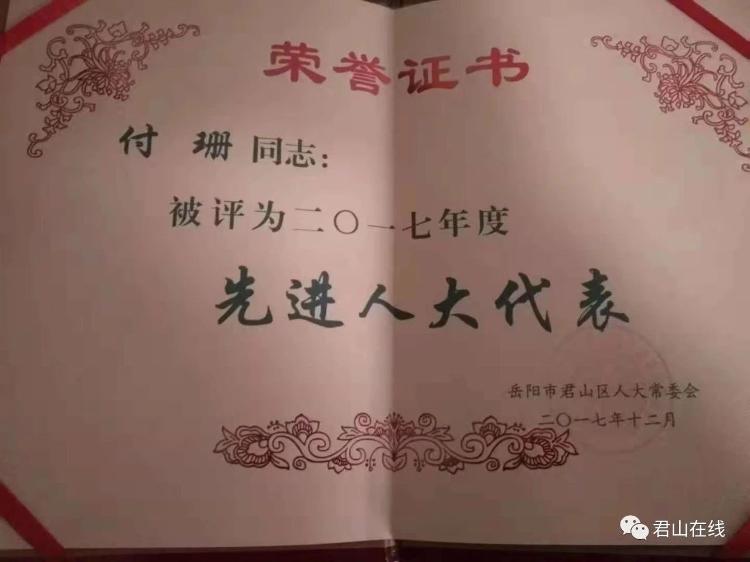 荣誉证书
付 珊 同志：
被评为二〇一七年度
先进人大代表
岳阳市君山区人大常委会
二〇一七年十二月
君山在线